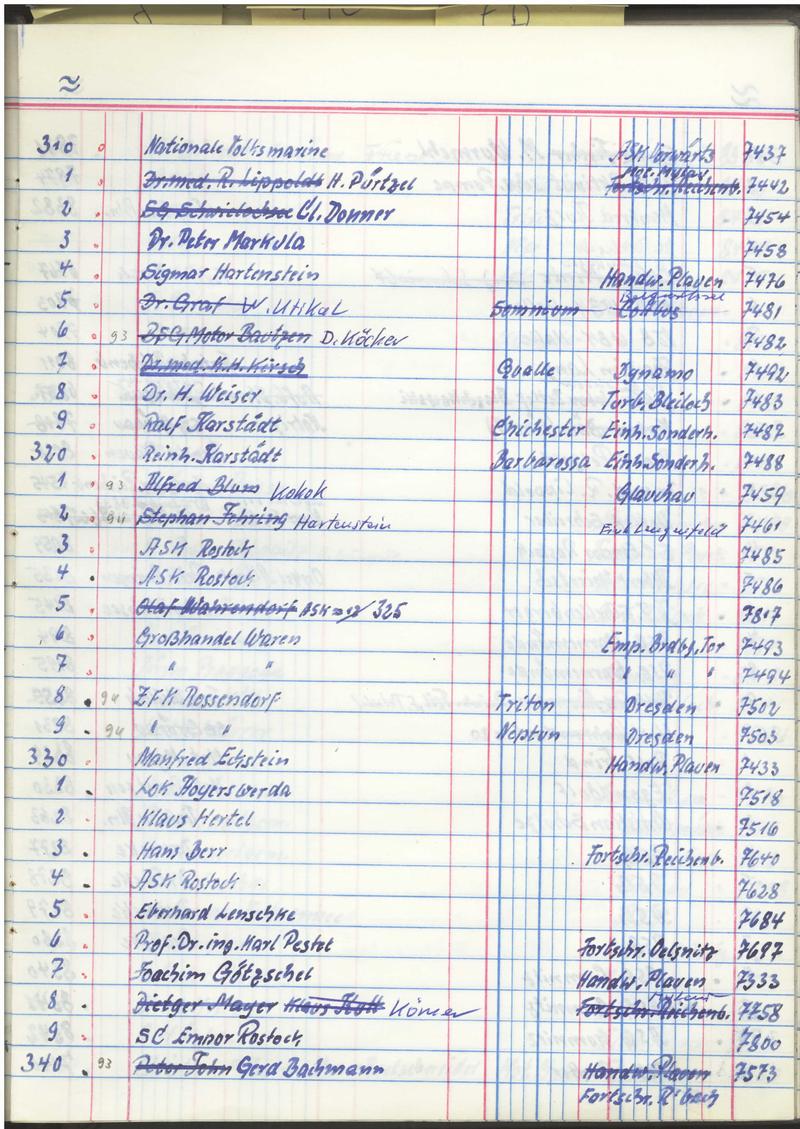 ≈
310 Nationale Volksmarine ASK Vorwärts 7437
1 Dr. med. R. Lippoldt H. Pürtzel Fortschr. Reichenb. 7442
2 SG Schwielochsee Cl. Donner 7454
3 Dr. Peter Markula 7458
4 Sigmar Hartenstein Handw. Plauen 7476
5 Dr. Graf W. Utikal Somnium Cottbus 7481
6 93 BSG Motor Bautzen D. Köcker 7482
7 Dr. med. K.H. Kirsch Qualle Dynamo 7492
8 Dr. H. Weiser Turb. Bleiloch 7483
9 Ralf Karstädt Chichester Einh. Sonderh. 7487
320 Reinh. Karstädt Barbarossa Einh. Sonderh. 7488
1 93 Alfred Blum Kokok Glauchau 7459
2 94 Stephan Fehring Hartenstein 7461
3 ASK Rostock 7485
4 ASK Rostock 7486
5 Olaf Wahrendorf ASK 325 7817
6 Großhandel Waren Emp. Brdbg. Tor 7493
7 " " " " " 7494
8 94 ZFK Rossendorf Triton Dresden 7502
9 94 " " Neptun Dresden 7503
330 Manfred Eckstein Handw. Plauen 7433
1 Lok Hoyerswerda 7518
2 Klaus Hertel 7516
3 Hans Berr Fortschr. Reichenb. 7640
4 ASK Rostock 7628
5 Eberhard Lenschke 7684
6 Prof. Dr.-ing. Karl Pestel Fortschr. Oelsnitz 7697
7 Joachim Götzschel Handw. Plauen 7333
8 Dietger Mayer Klaus Körner Fortschr. Reichenb. 7758
9 SC Empor Rostock 7800
340 93 Peter John Gerd Bachmann Handw. Plauen 7573
Fortschr. R'bach